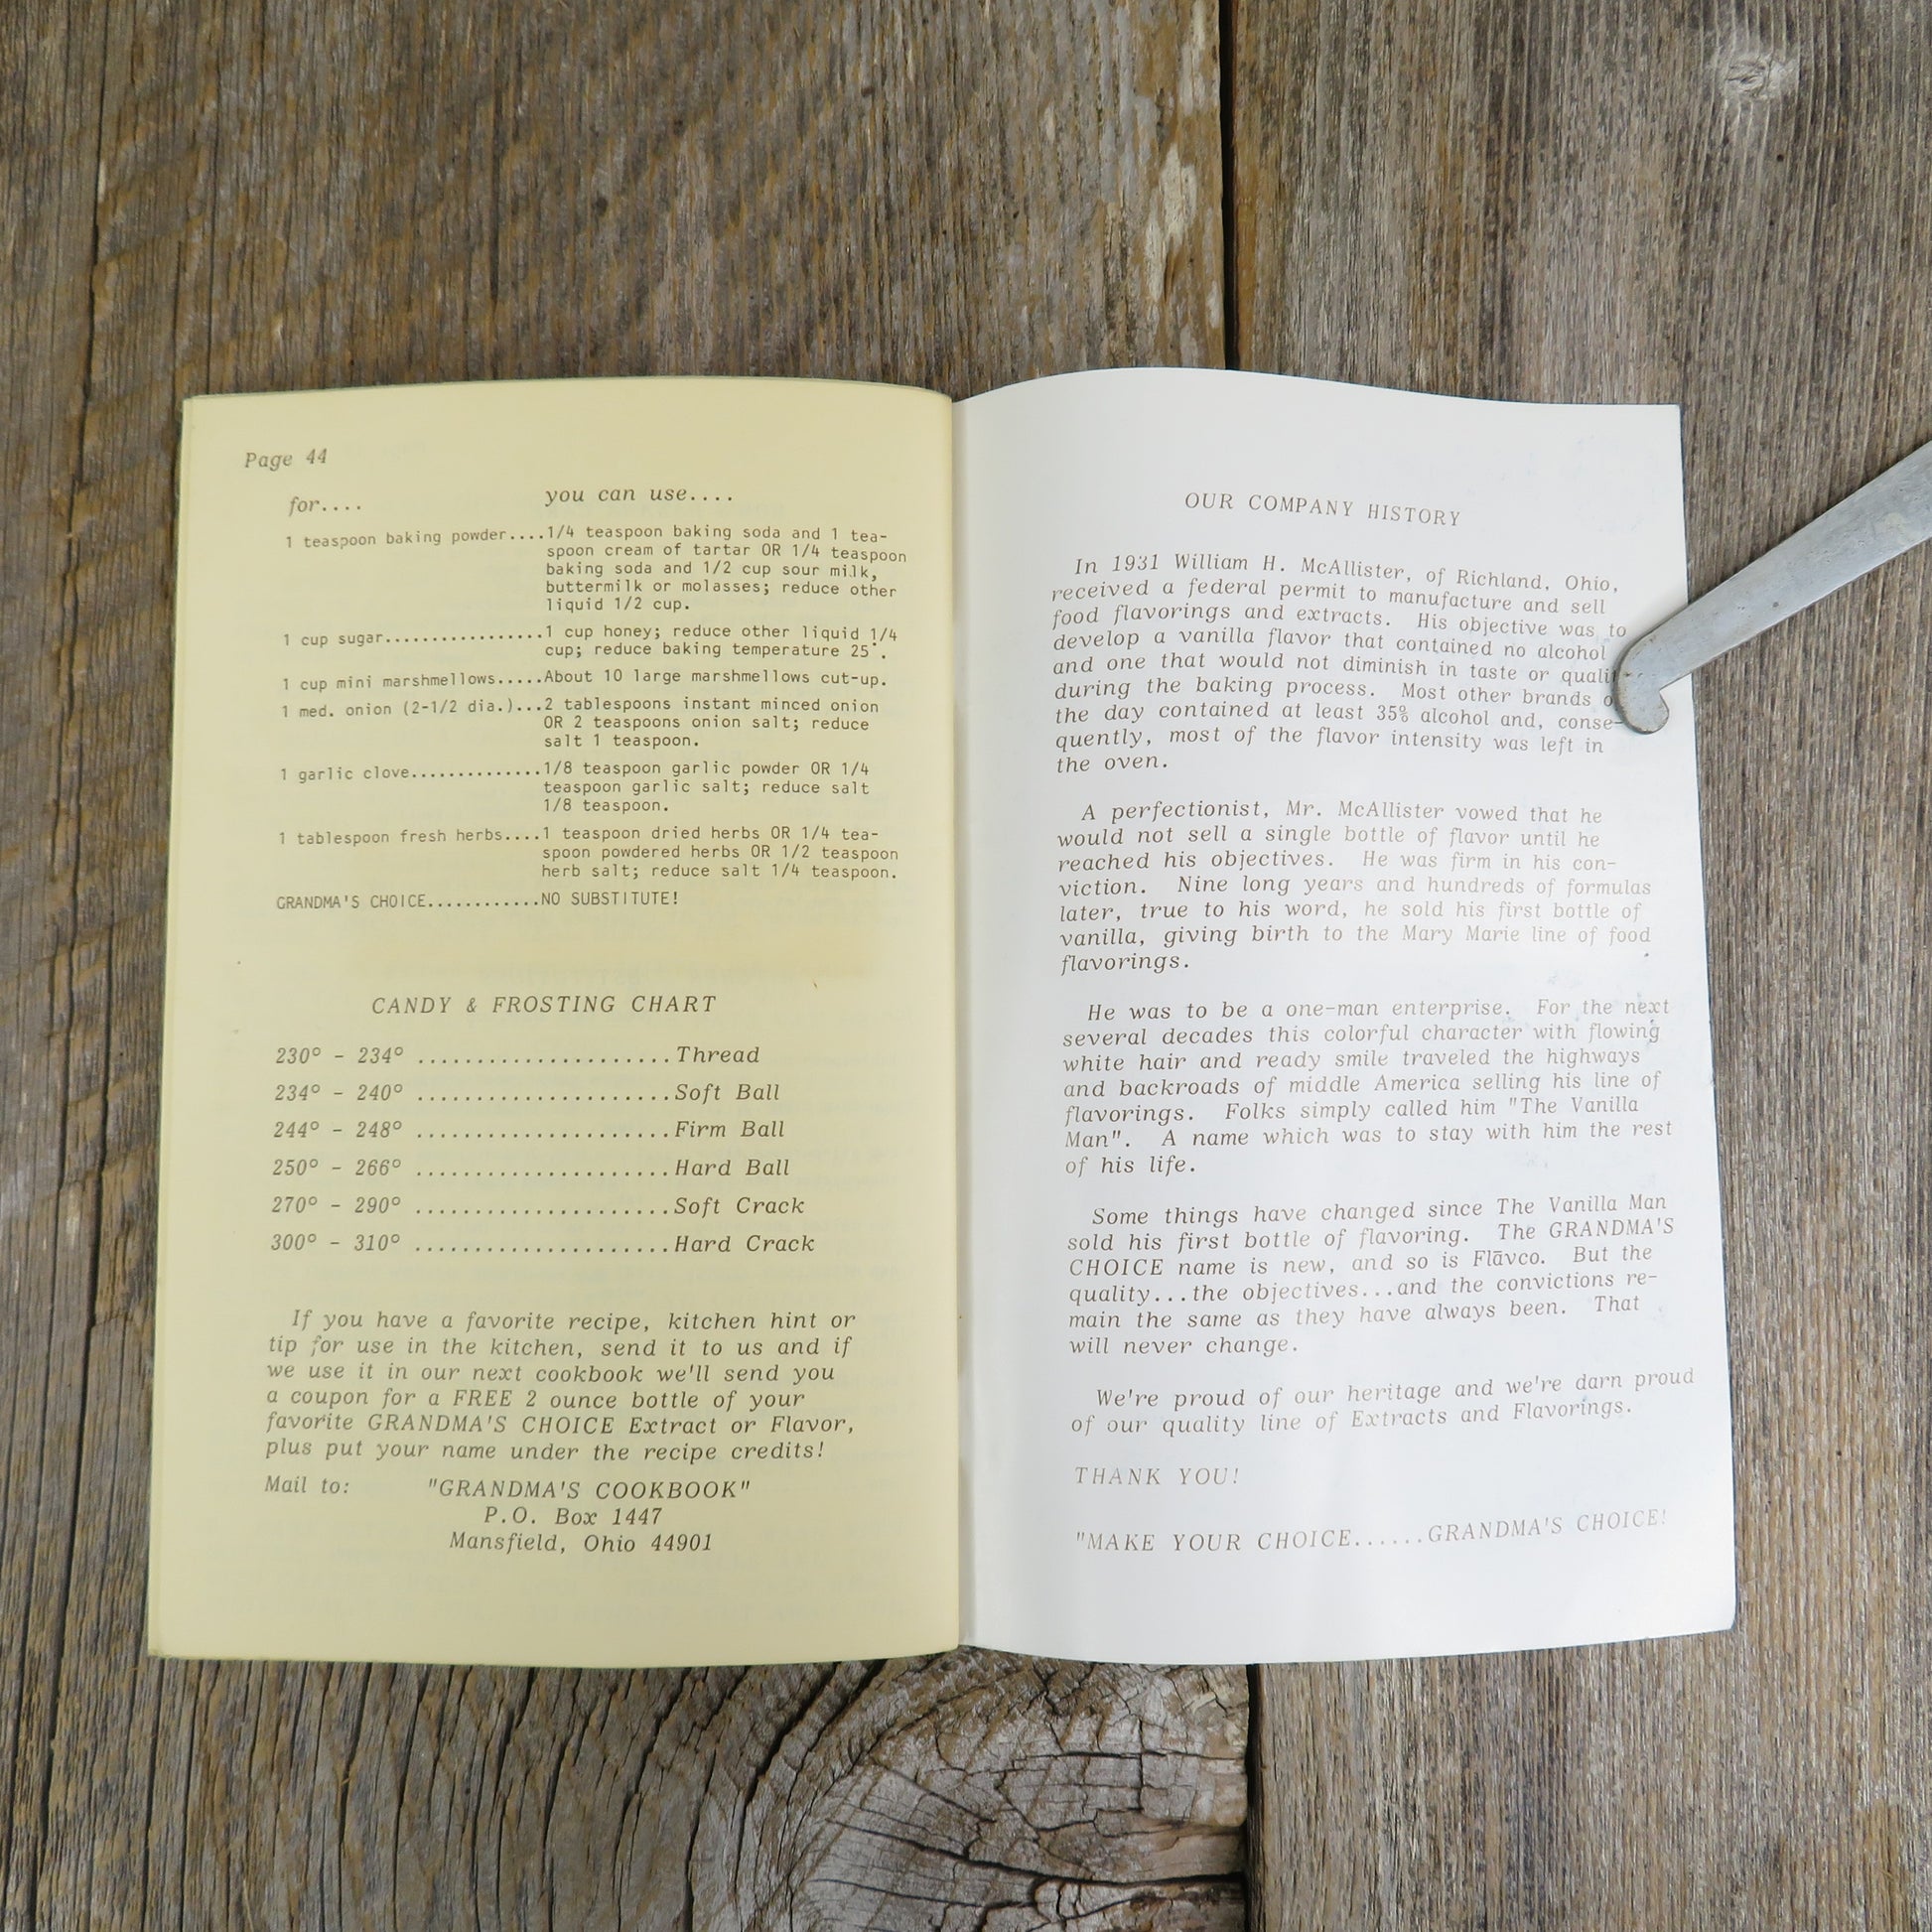 Page 44
for.... you can use....
1 teaspoon baking powder....1/4 teaspoon baking soda and 1 tea-
spoon cream of tartar OR 1/4 teaspoon
baking soda and 1/2 cup sour milk,
buttermilk or molasses; reduce other
liquid 1/2 cup.
1 cup sugar.................1 cup honey; reduce other liquid 1/4
cup; reduce baking temperature 25°.
1 cup mini marshmellows.....About 10 large marshmellows cut-up.
1 med. onion (2-1/2 dia.)...2 tablespoons instant minced onion
OR 2 teaspoons onion salt; reduce
salt 1 teaspoon.
1 garlic clove..............1/8 teaspoon garlic powder OR 1/4
teaspoon garlic salt; reduce salt
1/8 teaspoon.
1 tablespoon fresh herbs....1 teaspoon dried herbs OR 1/4 tea-
spoon powdered herbs OR 1/2 teaspoon
herb salt; reduce salt 1/4 teaspoon.
GRANDMA'S CHOICE............NO SUBSTITUTE!
CANDY & FROSTING CHART
230° - 234° ......................Thread
234° - 240° ......................Soft Ball
244° - 248° ......................Firm Ball
250° - 266° ......................Hard Ball
270° - 290° ......................Soft Crack
300° - 310° ......................Hard Crack
If you have a favorite recipe, kitchen hint or
tip for use in the kitchen, send it to us and if
we use it in our next cookbook we'll send you
a coupon for a FREE 2 ounce bottle of your
favorite GRANDMA'S CHOICE Extract or Flavor,
plus put your name under the recipe credits!
Mail to: "GRANDMA'S COOKBOOK"
P.O. Box 1447
Mansfield, Ohio 44901
OUR COMPANY HISTORY
In 1931 William H. McAllister, of Richland, Ohio,
received a federal permit to manufacture and sell
food flavorings and extracts. His objective was to
develop a vanilla flavor that contained no alcohol
and one that would not diminish in taste or quali
during the baking process. Most other brands o
the day contained at least 35% alcohol and, conse-
quently, most of the flavor intensity was left in
the oven.
A perfectionist, Mr. McAllister vowed that he
would not sell a single bottle of flavor until he
reached his objectives. He was firm in his con-
viction. Nine long years and hundreds of formulas
later, true to his word, he sold his first bottle of
vanilla, giving birth to the Mary Marie line of food
flavorings.
He was to be a one-man enterprise. For the next
several decades this colorful character with flowing
white hair and ready smile traveled the highways
and backroads of middle America selling his line of
flavorings. Folks simply called him "The Vanilla
Man". A name which was to stay with him the rest
of his life.
Some things have changed since The Vanilla Man
sold his first bottle of flavoring. The GRANDMA'S
CHOICE name is new, and so is Flāvco. But the
quality...the objectives...and the convictions re-
main the same as they have always been. That
will never change.
We're proud of our heritage and we're darn proud
of our quality line of Extracts and Flavorings.
THANK YOU!
"MAKE YOUR CHOICE......GRANDMA'S CHOICE!